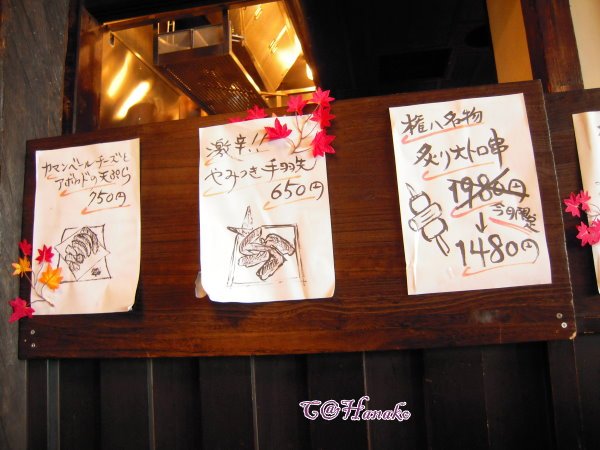 カマンベールチーズと
アボカドの天ぷら
750円
激辛!!
やみつき手羽先
650円
権八名物
炙り大トロ串
1980円
今月限定
↓
1480円
T@Hanako